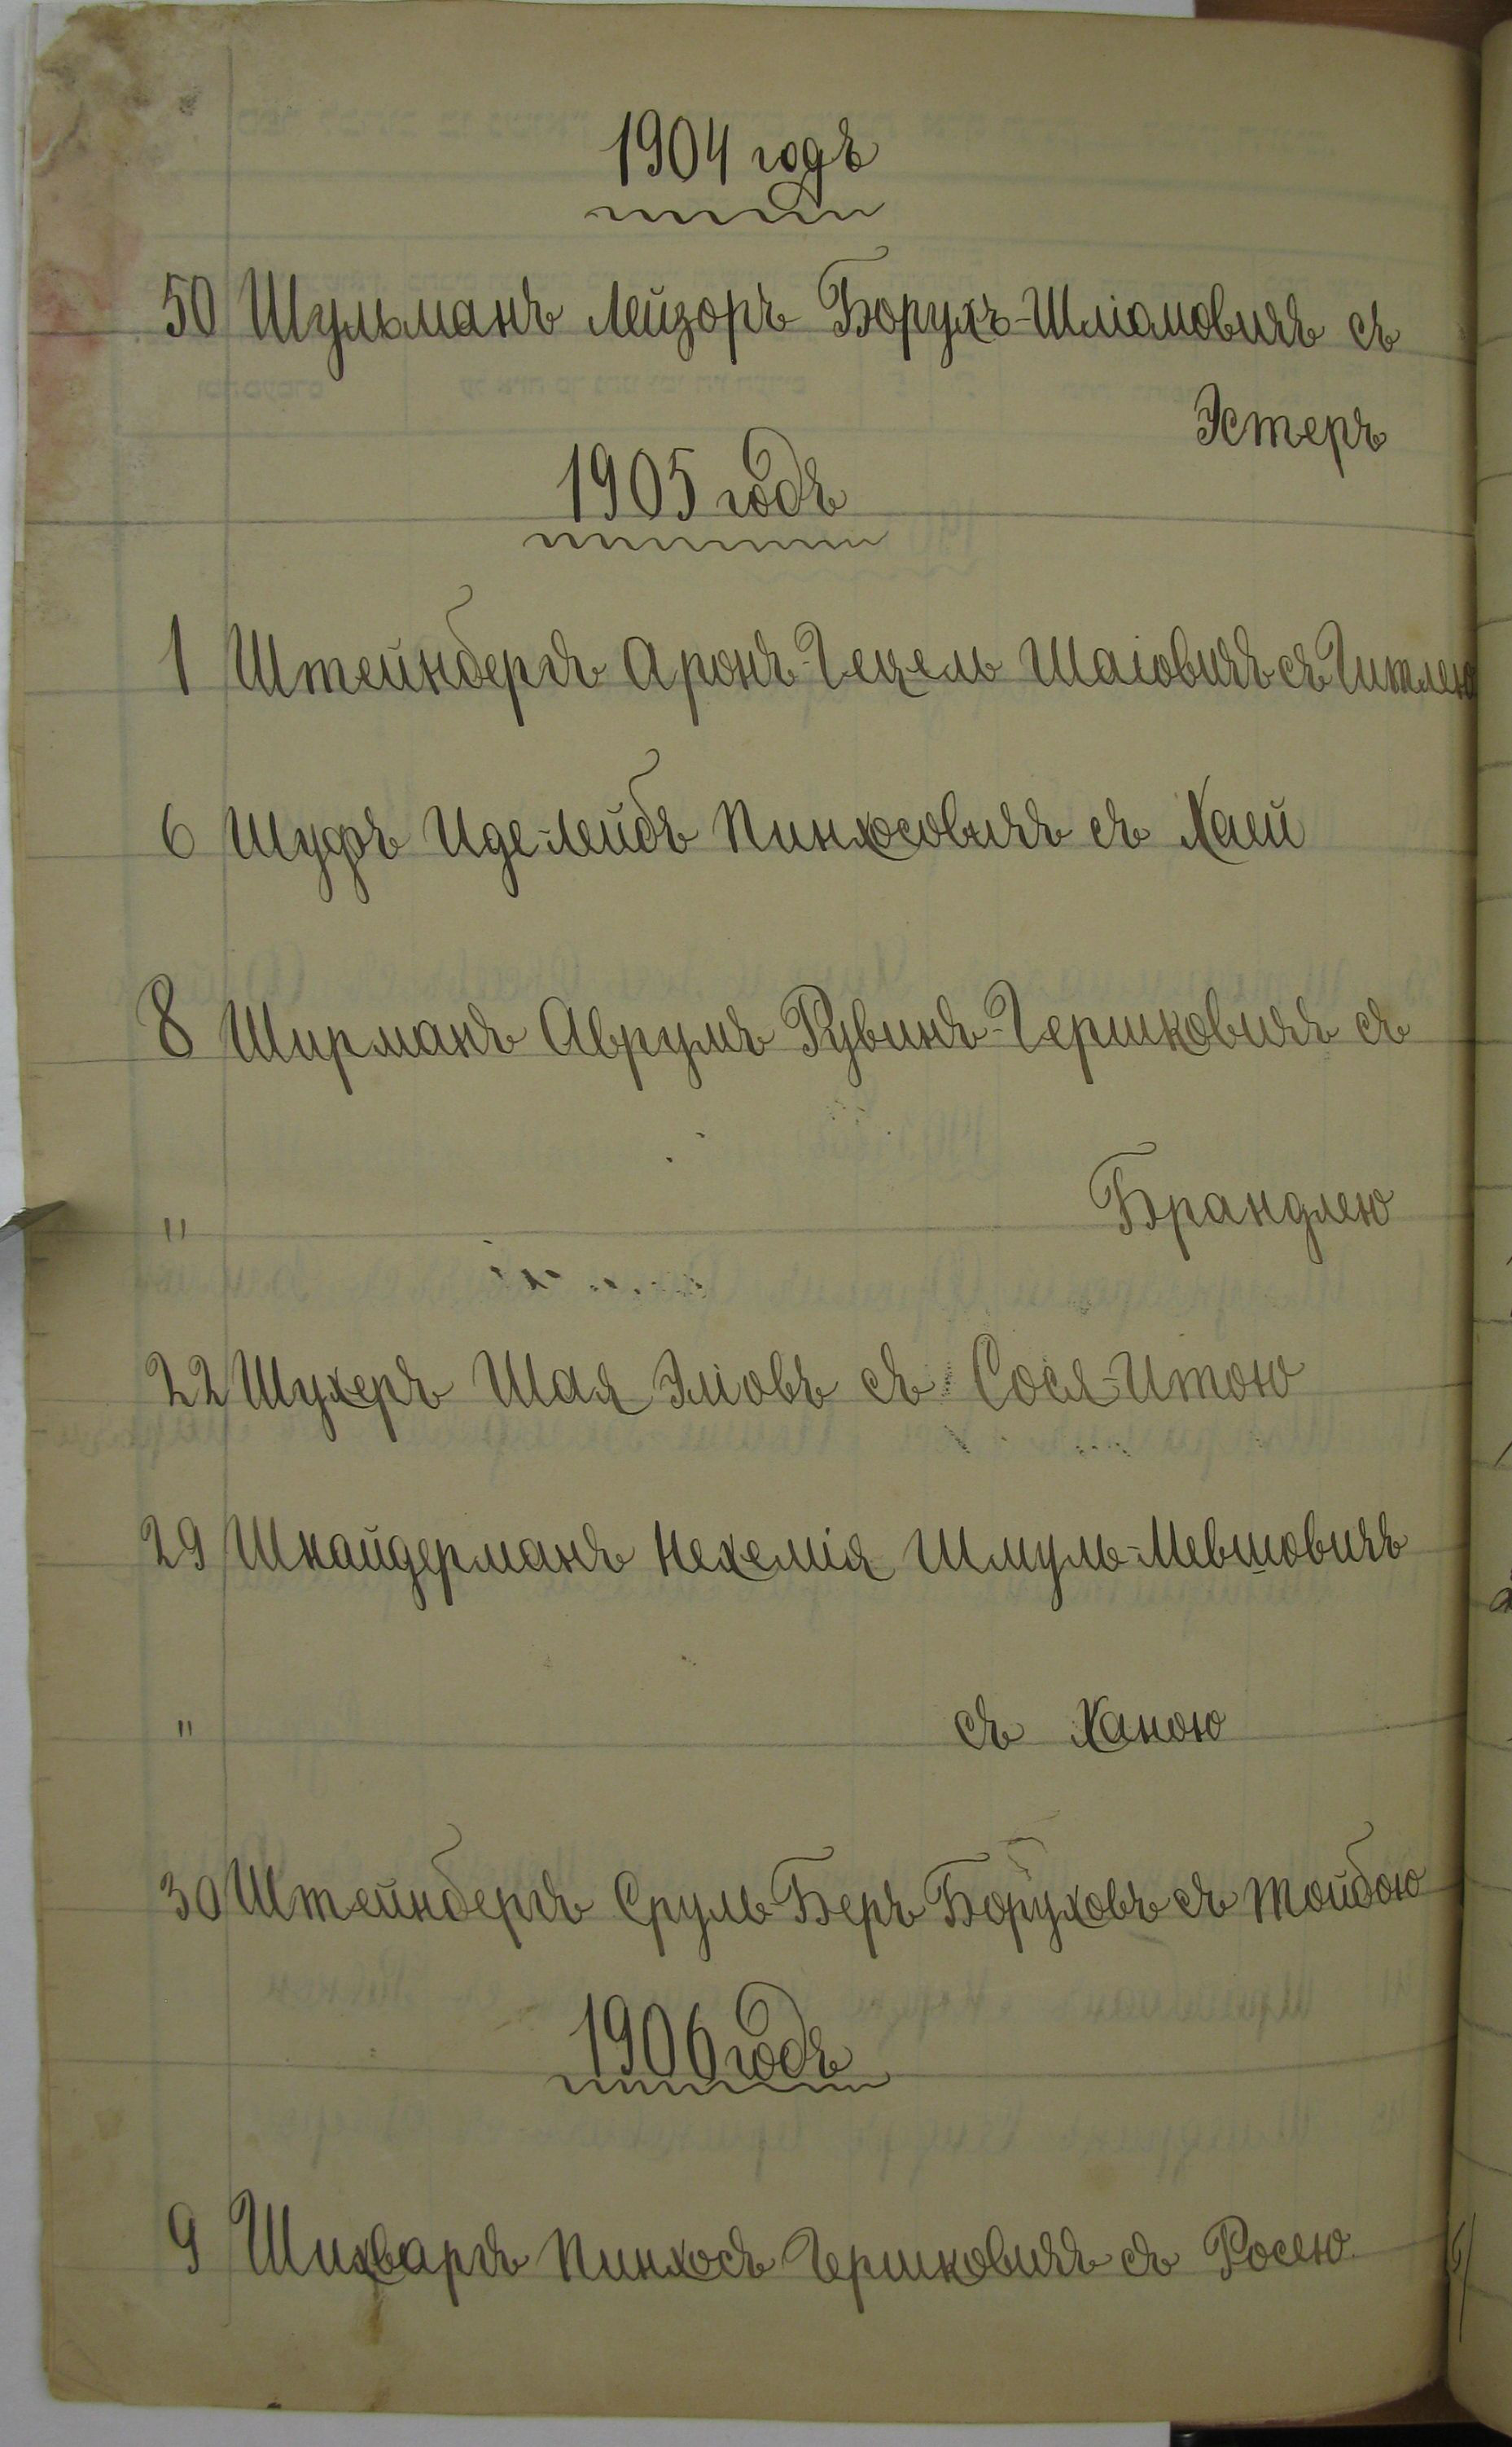 1904 годъ
50 Шульманъ Лейзоръ Борухъ-Шліомовичъ съ
Эстеръ
1905 годъ
1 Штейнбергъ Аронъ-Гецель Шаіовичъ съ Гитлею
6 Шуфъ Иде-Лейбъ Пинхосовичъ съ Хаей
8 Ширманъ Аврумъ Рувинъ-Гершковичъ съ
" Брандлею
22 Шухеръ Шая Эліовъ съ Сося-Итою
29 Шнайдерманъ Нехемія Шмуль-Мевшовичъ
" съ Ханою
30 Штейнбергъ Сруль-Беръ Боруховъ съ Тойбою
1906 годъ
9 Шихваргъ Пинхосъ Гершковичъ съ Росею